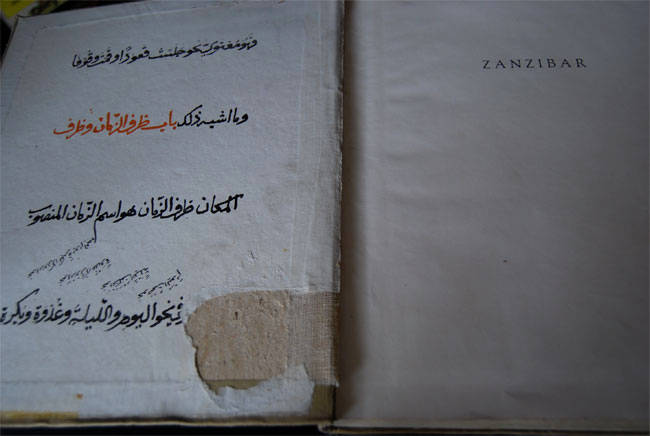 فهو معنوي نحو جلست قعودًا وقمت وقوفا
وما اشبه ذلك باب ظرف الزّمان وظرف
المكان ظرف الزّمان هو اسم الزّمان المنصوب
في نحو اليوم واللّيلة وغدوة وبكرة
ZANZIBAR